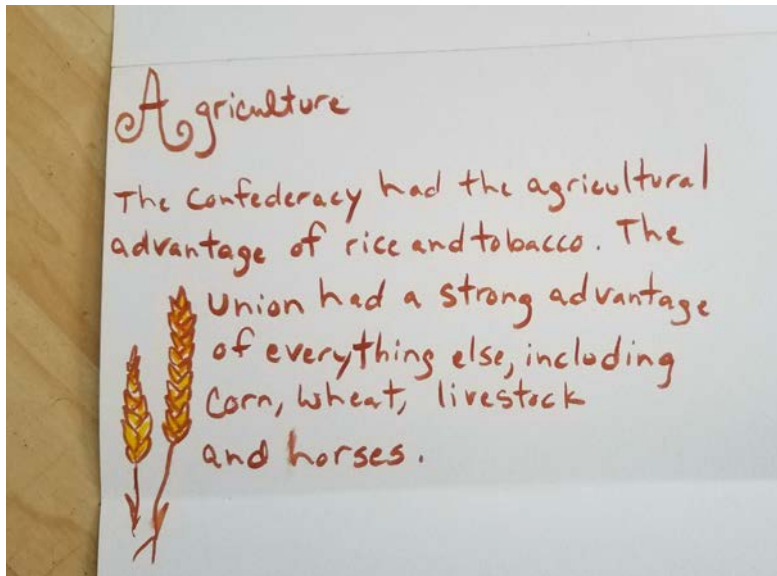 Agriculture
The Confederacy had the agricultural
advantage of rice and tobacco. The
Union had a strong advantage
of everything else, including
corn, wheat, livestock
and horses.